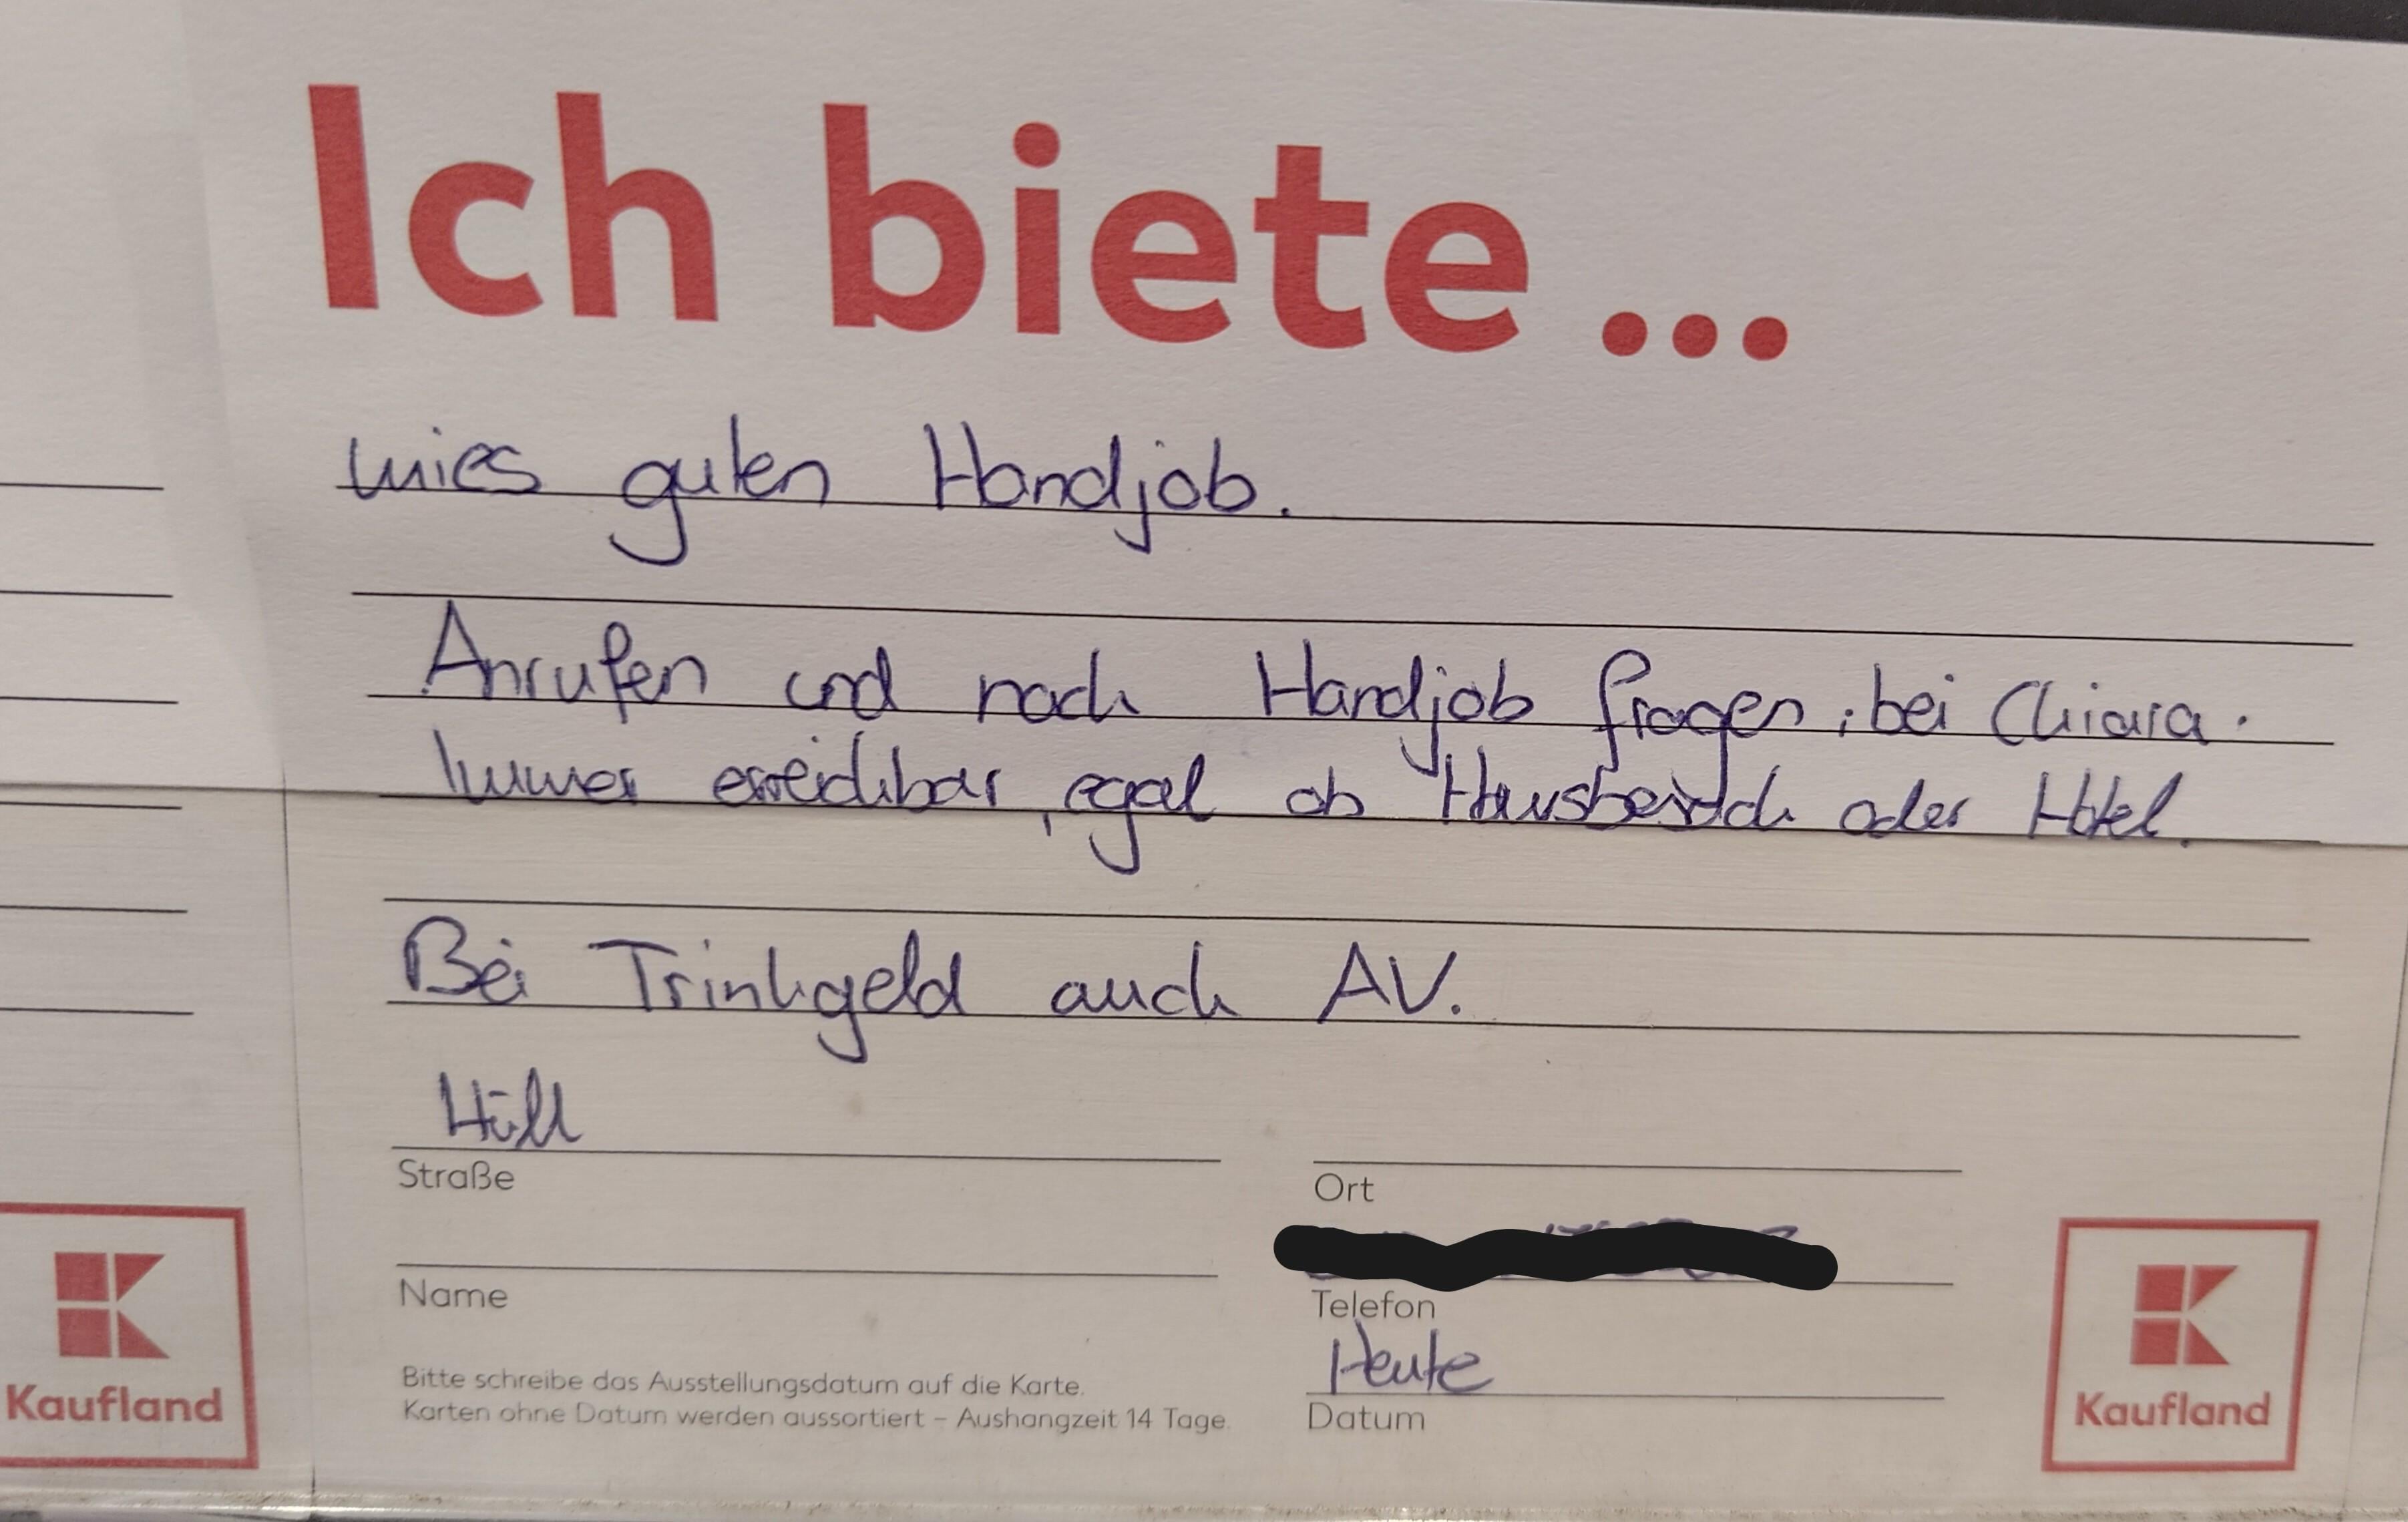 Ich biete ...
mies guten Handjob.
Anrufen und nach Handjob fragen, bei Chiara.
Immer erreichbar, egal ob Hausbesuch oder Hotel.
Bei Trinkgeld auch AV.
Straße
Ort
Name
Telefon
Heute
Bitte schreibe das Ausstellungsdatum auf die Karte.
Karten ohne Datum werden aussortiert – Aushangzeit 14 Tage.
Datum
Kaufland
Kaufland